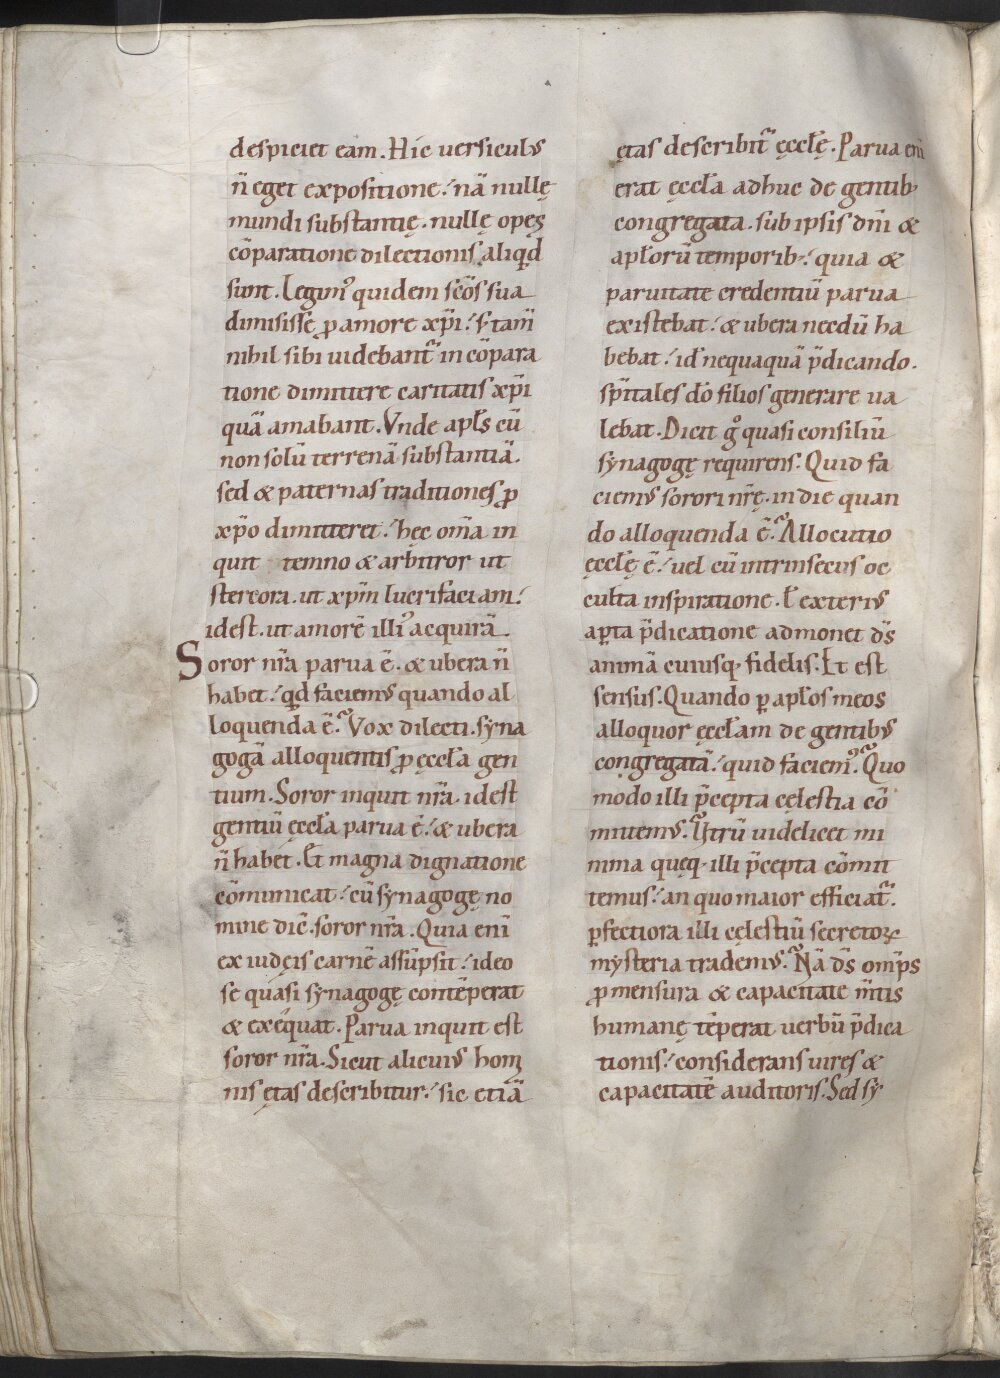 despiciet eam. Hic uersiculus
n̄ eget expositione. nā nullę
mundi substantię. nullę opes
cōparatione dilectionis aliqd
sunt. Legim᾿ quidem sc̄os sua
dimisisse ꝓ amore xp̄i. s; tam̄
nihil sibi uidebant᷑ in cōpara
tione dimittere caritatis xp̄i
quā amabant. Vnde apl̄s cū
non solū terrenā substantiā.
sed & paternas traditiones ꝓ
xp̄o dimitteret. hęc om̄a in
quit temno & arbitror ut
stercora. ut xp̄m lucrifaciam.
idest. ut amorē illi᾿ acquirā.
Soror nr̄a parua ē. & ubera n̄
habet. qd faciemus quando al
loquenda ē? Vox dilecti. syna
gogā alloquentis ꝓ ęccl̄a gen
tium. Soror inquit nr̄a. idest
gentiū ęccl̄a parua ē. & ubera
n̄ habet. Et magna dignatione
cōmunicat. cū synagogę no
mine dic̄. soror nr̄a. Quia eni̅
ex iudęis carnē assūpsit. ideo
se quasi synagogę contēperat
& exęquat. Parua inquit est
soror nr̄a. Sicut alicuius homi
nis ętas describitur. sic etiā
ętas describit᷑ ęccl̄ę. Parua eni̅
erat ęccl̄a adhuc de gentib;
congregata. sub ipsis dn̄i &
apl̄orū temporib;. quia &
paruitate credentiū parua
existebat. & ubera necdū ha
bebat. id ̄ nequaquā p̄dicando.
sp̄itales dō filios generare ua
lebat. Dicit gͦ quasi consiliū
synagogę requirens. Quid fa
ciemus sorori nr̄ę. in die quan
do alloquenda ē? Allocutio
ęccl̄ę ē. uel cū intrinsecus oc
culta inspiratione. ł exterius
aꝑta p̄dicatione admonet d̄s
animā cuiusq; fidelis. Et est
sensus. Quando ꝑ apl̄os meos
alloquor ęccl̄am de gentibus
congregatā. quid faciem᾿? Quo
modo illi p̄cepta cęlestia cō
mittemus? Vtrū uidelicet mi
nima quęq; illi p̄cepta cōmit
temus. an quo maior efficiat᷑.
ꝑfectiora illi cęlestiū secretoꝝ
mysteria trademus? Nā d̄s om̄ps
ꝓ mensura & capacitate m̄tis
humanę tēperat uerbū p̄dica
tionis. considerans uires &
capacitatē auditoris. Sed sy